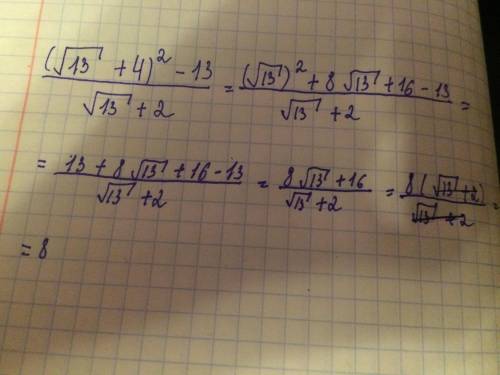 ((√13 + 4)² - 13)/(√13 + 2) = ((√13)² + 8√13 + 16 - 13)/(√13 + 2) =
= (13 + 8√13 + 16 - 13)/(√13 + 2) = (8√13 + 16)/(√13 + 2) = (8(√13 + 2))/(√13 + 2) =
= 8